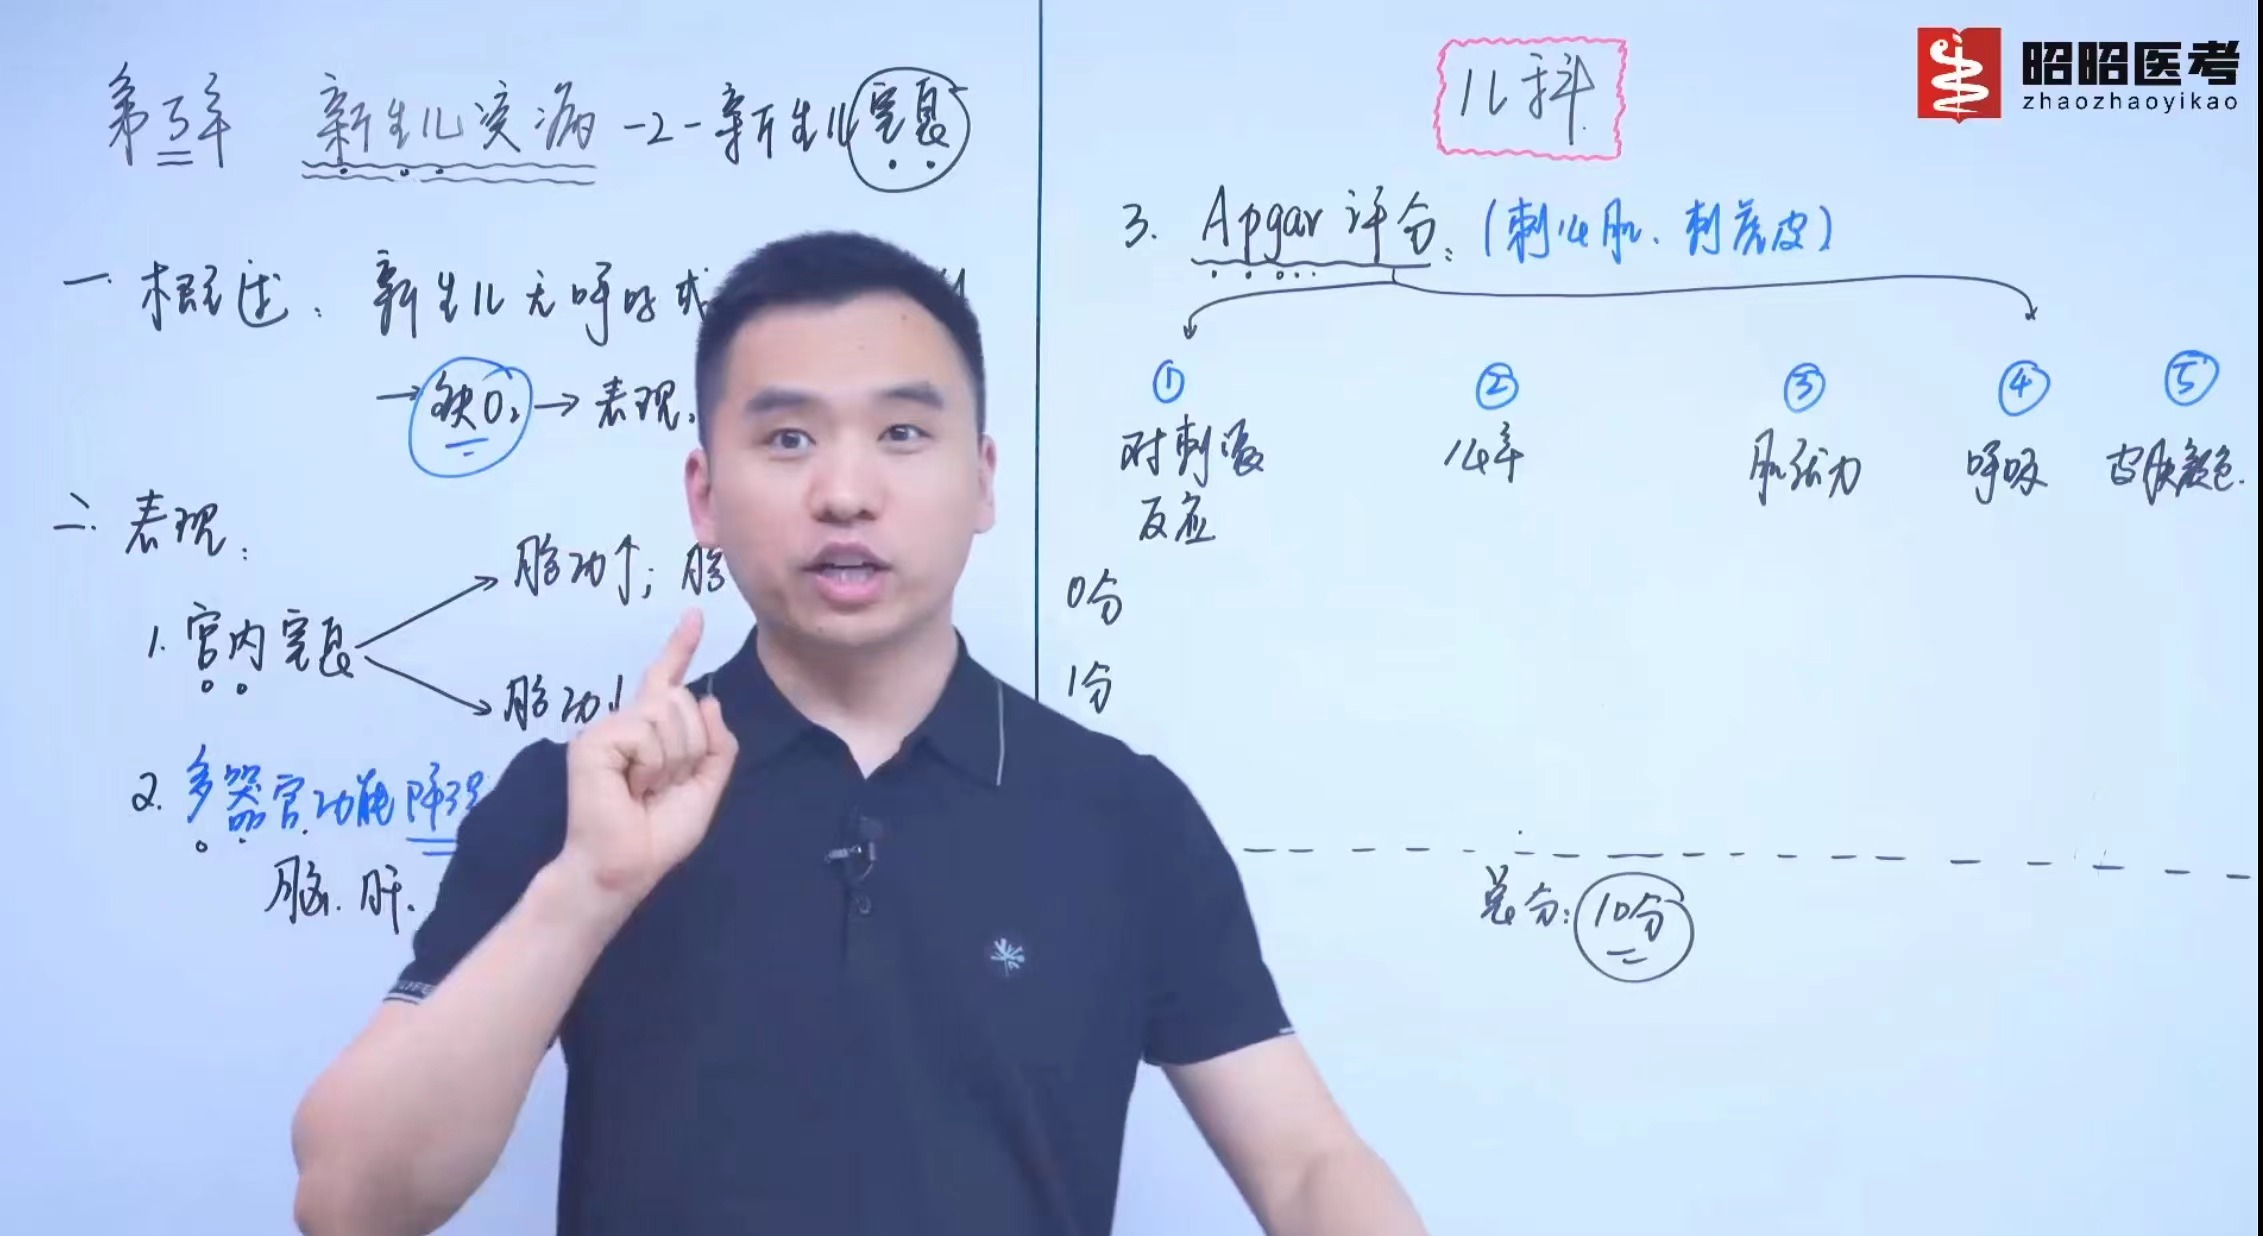 第5章 新生儿疾病-2-新生儿窒息
一. 概述: 新生儿无呼吸或
→缺O₂→表现,
二. 表现:
1. 宫内窒息
胎动↑; 胎
胎动↓
2. 多器官功能障碍
脑. 肝.
儿科
昭昭医考
zhaozhaoyikao
3. Apgar评分: (刺心肌、刺虎皮)
① ② ③ ④ ⑤
对刺激反应 心率 肌张力 呼吸 皮肤颜色.
0分
1分
总分: 10分